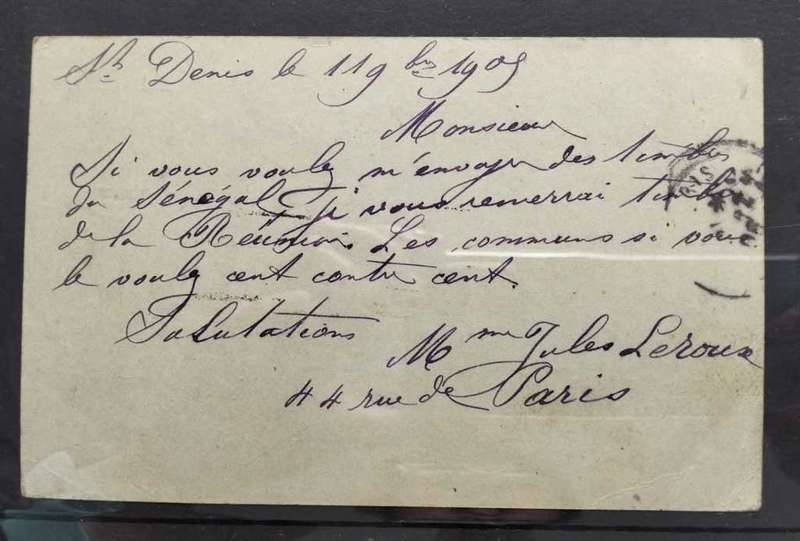 St Denis le 11 9bre 1905
Monsieur
Si vous voulez m'envoyer des timbres
du Sénégal je vous renverrai timbres
de la Réunion. Les communs si vous
le voulez cent contre cent.
Salutations
Mme Jules Leroux
44 rue de Paris